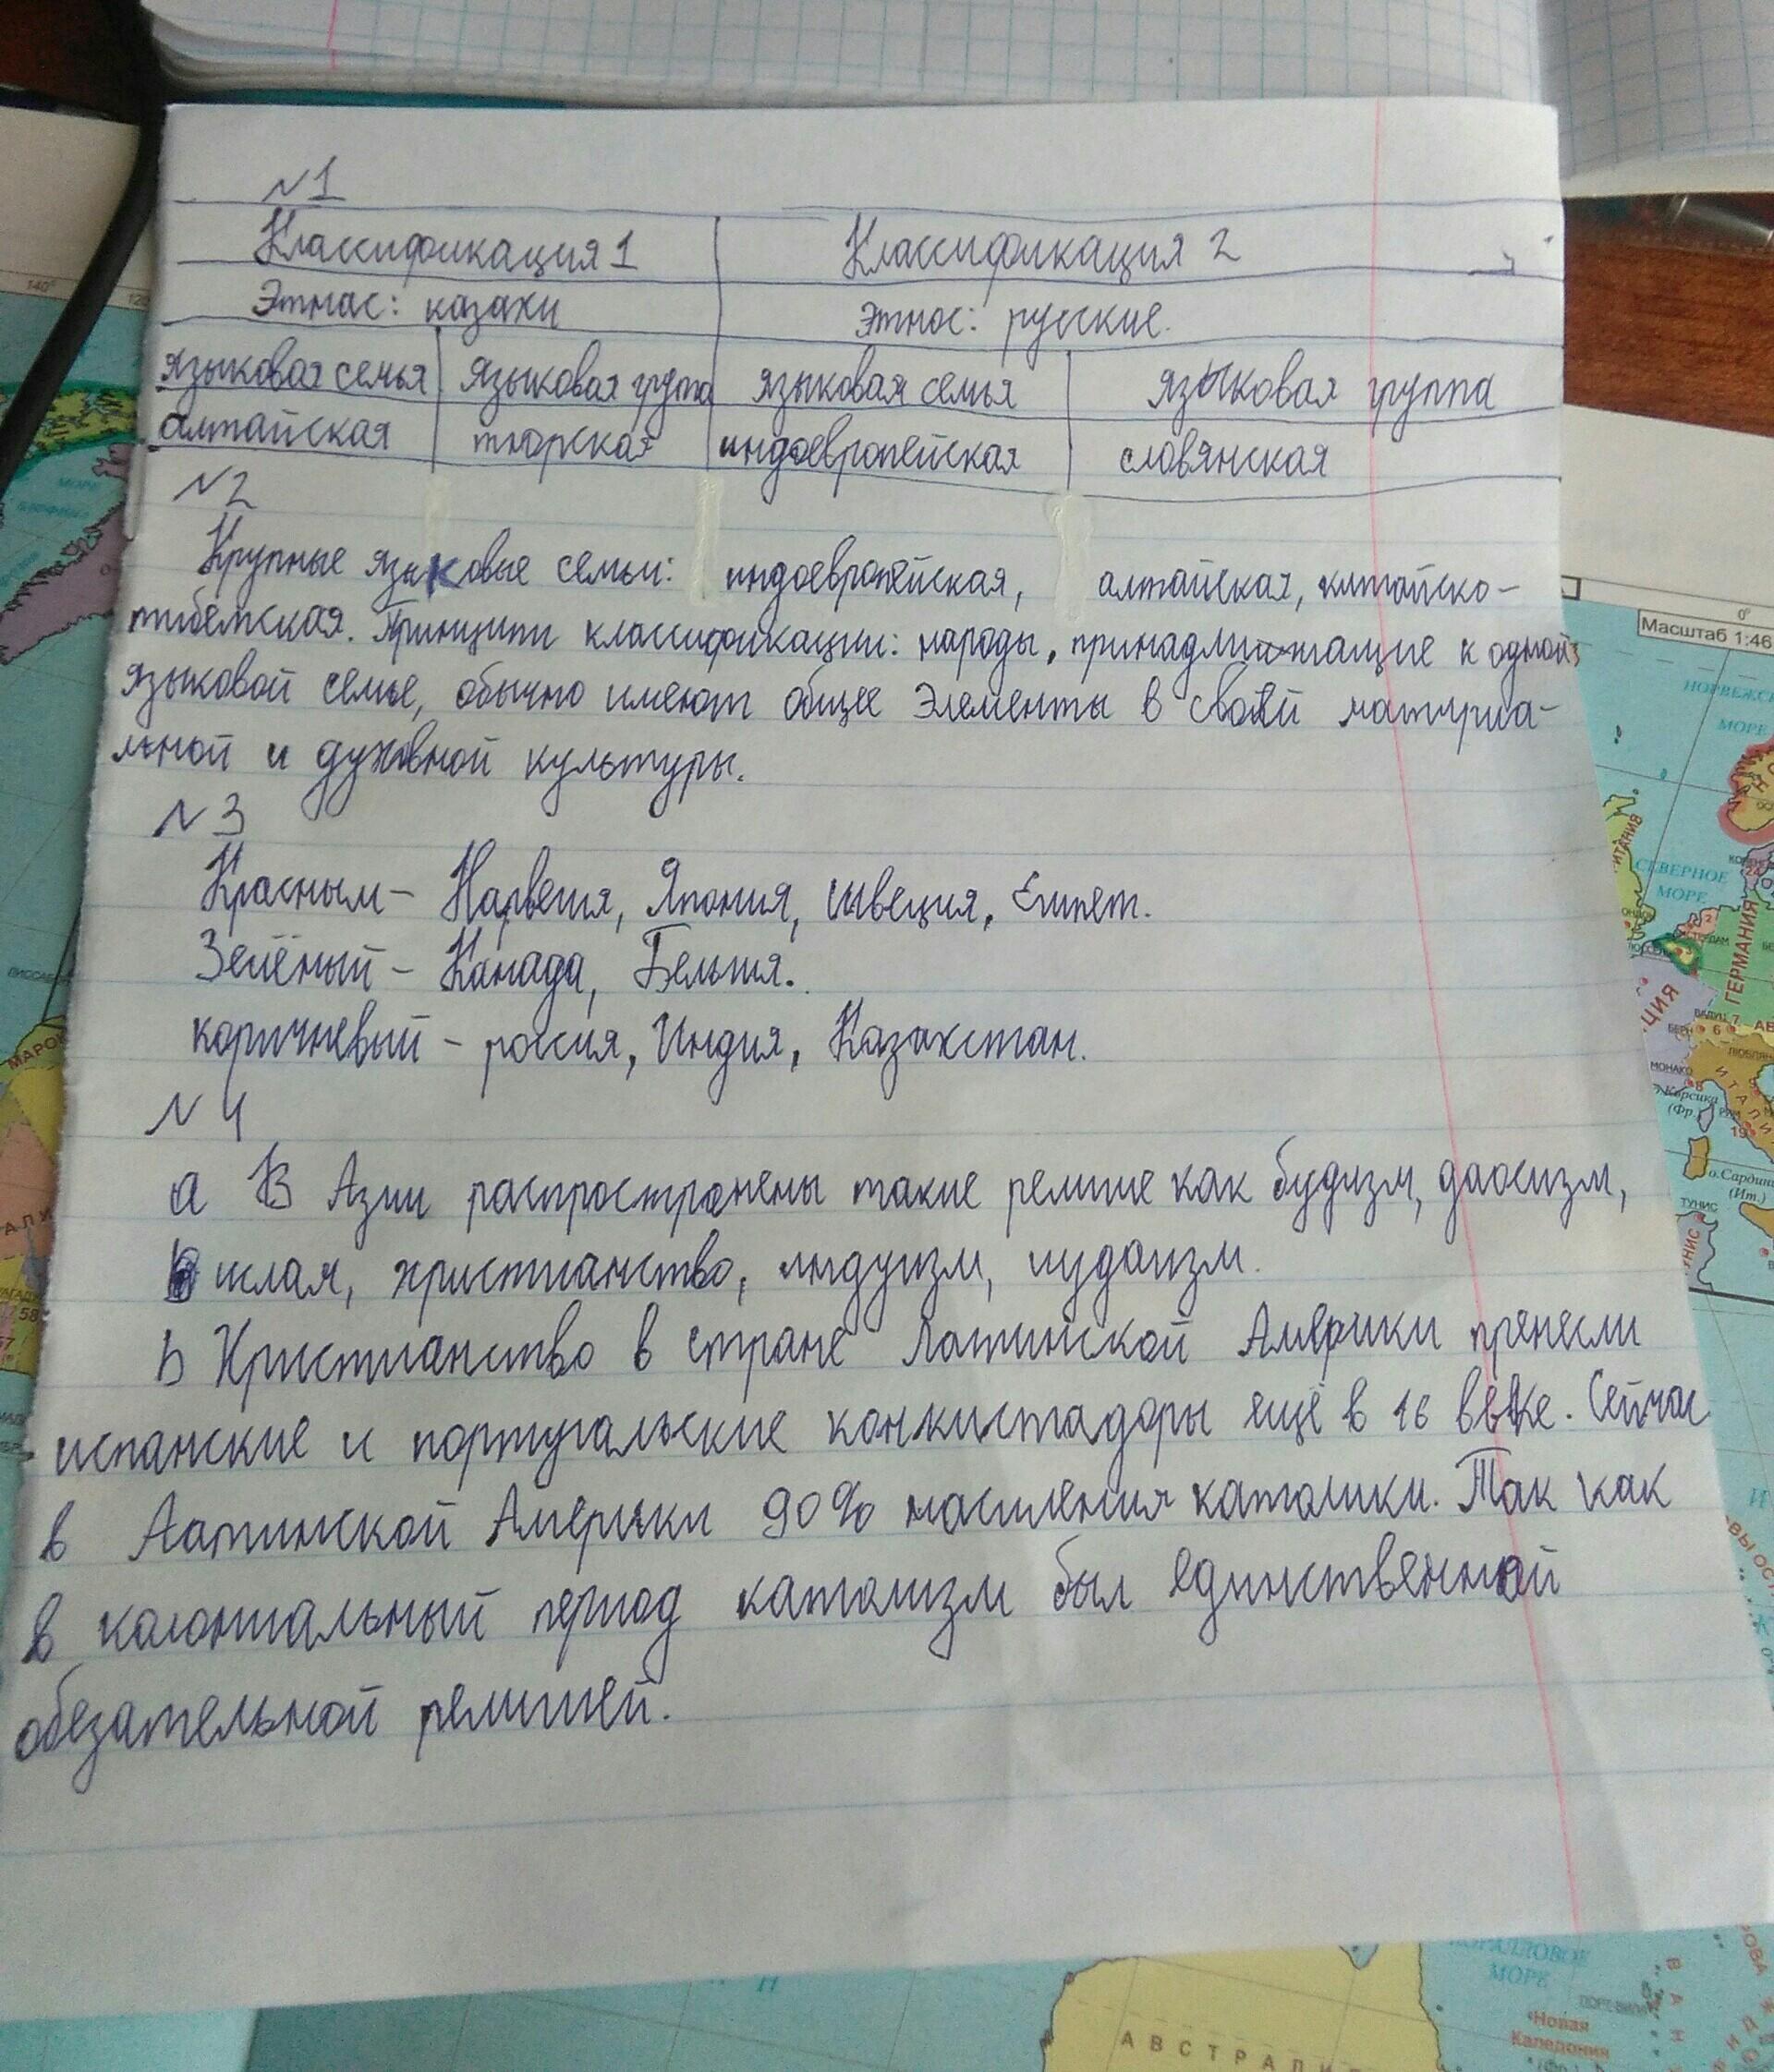 №1
Классификация 1 Классификация 2
Этнас: казахи Этнос: русские.
языковая семья языковая група языковая семья языковая группа
алтайская тюрская индоевропейская словянская
№2
Крупные языковые семьи: индоевропейская, алтайская, китайско-
тибетская. Принципи классификации: народы, принадлижащие к одной
языковой семье, обычно имеют общее элементы в своей матириа-
льной и духовной культуры.
№3
Красным - Нарвегия, Япония, швеция, Египет.
Зелёный - Канада, Бельгия.
коричневый - россия, Индия, Казахстан.
№4
а В Азии распространены такие религие как будизм, даосизм,
ислам, христианство, индуизм, иудаизм.
b Христианство в стране Латинской Америки принесли
испанские и португальские конкистадоры ещё в 16 веке. Сейчас
в Латинской Америки 90% насиления католики. Так как
в колониальный период католизм был единственной
обезательной религией.
Масштаб 1:46
НОРВЕЖСК
МОРЕ
СЕВЕРНОЕ
МОРЕ
ГЕРМАНИЯ
МОНАКО
о.Корсика
(Фр.)
ИТАЛИ
о.Сардин
(Ит.)
ТУНИС
МАРОК
140°
120
0°
КОРАЛЛОВОЕ
МОРЕ
Новая
Каледония
АВСТРАЛИ